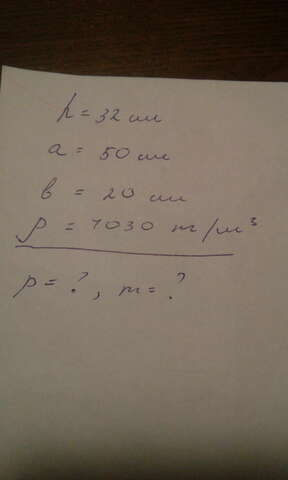 h = 32 см
a = 50 см
в = 20 см
ρ = 1030 т/м³
p = ?, m = ?